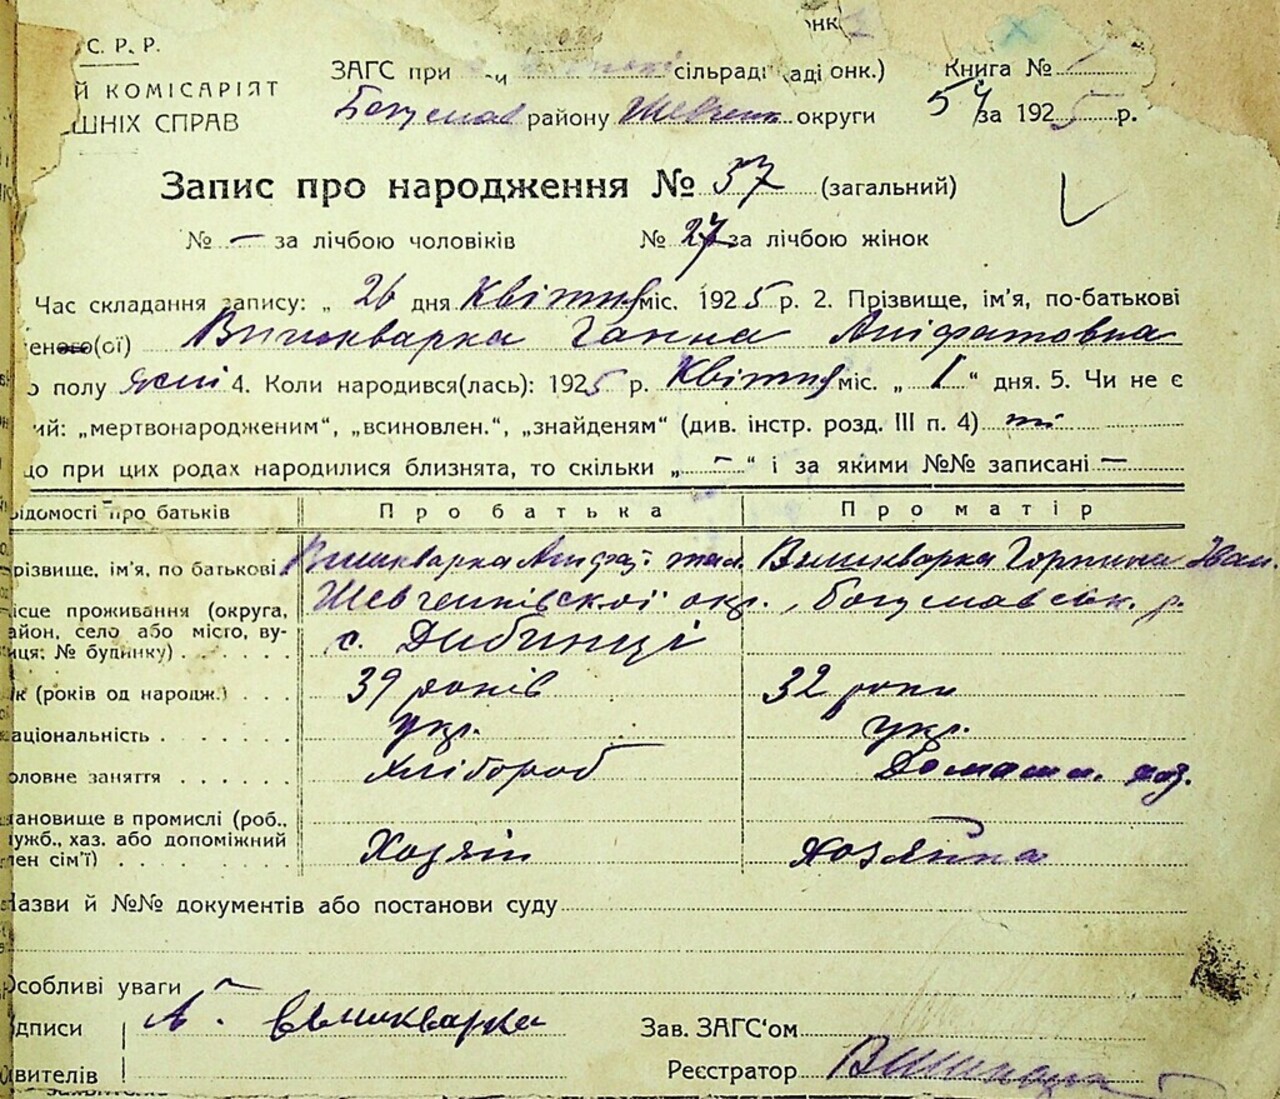 С. Р. Р.
онк
ЗАГС при сільраді (раді онк.) Книга №
Й КОМІСАРІЯТ
Богуслав району Шевченк округи 54 за 1925 р.
ШНІХ СПРАВ
Запис про народження № 57 (загальний)
№ — за лічбою чоловіків № 27 за лічбою жінок
Час складання запису: „ 26 дня Квітня міс. 1925 р. 2. Прізвище, ім'я, по-батькові
еного(ої) Вишкварка Ганна Аніфатовна
о полу жені 4. Коли народився(лась): 1925 р. Квітня міс. „ 1 “ дня. 5. Чи не є
ий: „мертвонародженим“, „всиновлен.“, „знайденям“ (див. інстр. розд. III п. 4) ні
що при цих родах народилися близнята, то скільки „ — “ і за якими №№ записані —
ідомості про батьків Про батька Про матір
різвище, ім'я, по батькові Вишкварка Аніфат. Вишкварка Горпина Іван.
ісце проживання (округа, Шевченківскої окр., Богуславськ. р.
айон, село або місто, ву-
иця; № будинку) с. Дибинці
ік (років од народж.) 39 років 32 роки
аціональність укр. укр.
оловне заняття Хлібороб Домашн. хаз.
тановище в промислі (роб.,
ужб., хаз. або допоміжний
лен сім'ї) Хозяїн Хозяйка
Назви й №№ документів або постанови суду
Особливі уваги
дписи А. Вишкварка Зав. ЗАГС'ом
явителів Реєстратор